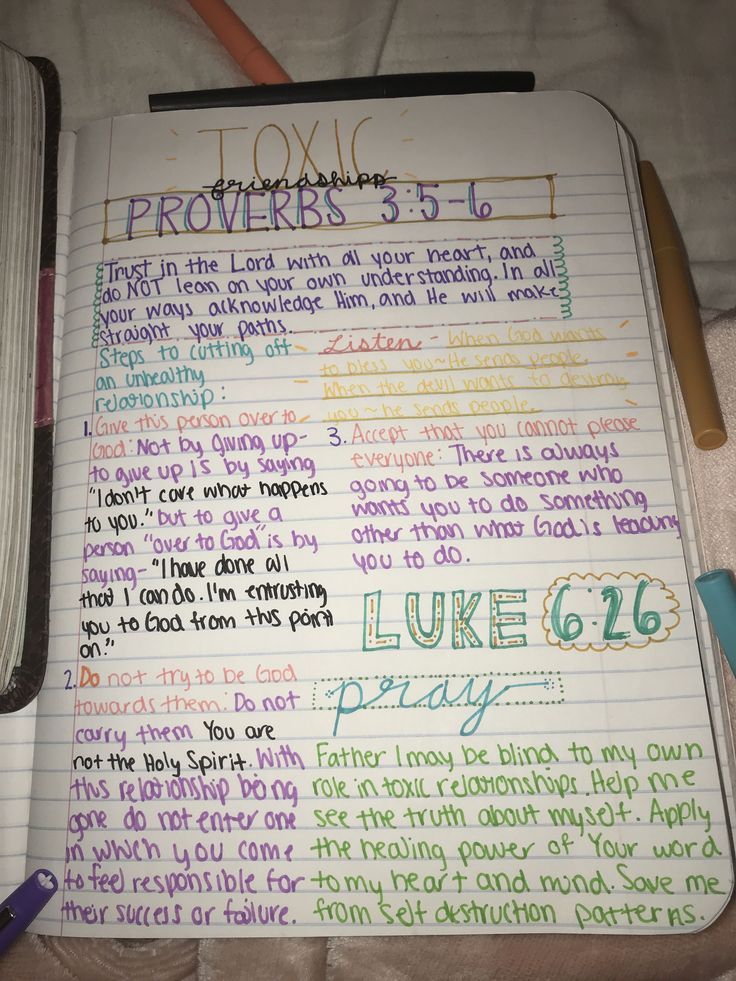 TOXIC
friendships
PROVERBS 3:5-6
Trust in the Lord with all your heart, and
do NOT lean on your own understanding. In all
your ways acknowledge Him, and He will make
straight your paths.
Steps to cutting off
an unhealthy
relationship:
1. Give this person over to
God: Not by giving up-
to give up is by saying
"I don't care what happens
to you." but to give a
person "over to God" is by
saying- "I have done all
that I can do. I'm entrusting
you to God from this point
on."
2. Do not try to be God
towards them: Do not
carry them You are
not the Holy Spirit. With
this relationship being
gone do not enter one
in which you come
to feel responsible for
their success or failure.
Listen - When God wants
to bless you~He sends people.
When the devil wants to destroy
you~he sends people.
3. Accept that you cannot please
everyone: There is always
going to be someone who
wants you to do something
other than what God is leading
you to do.
LUKE 6:26
pray
Father I may be blind to my own
role in toxic relationships. Help me
see the truth about myself. Apply
the healing power of Your word
to my heart and mind. Save me
from self destruction patterns.